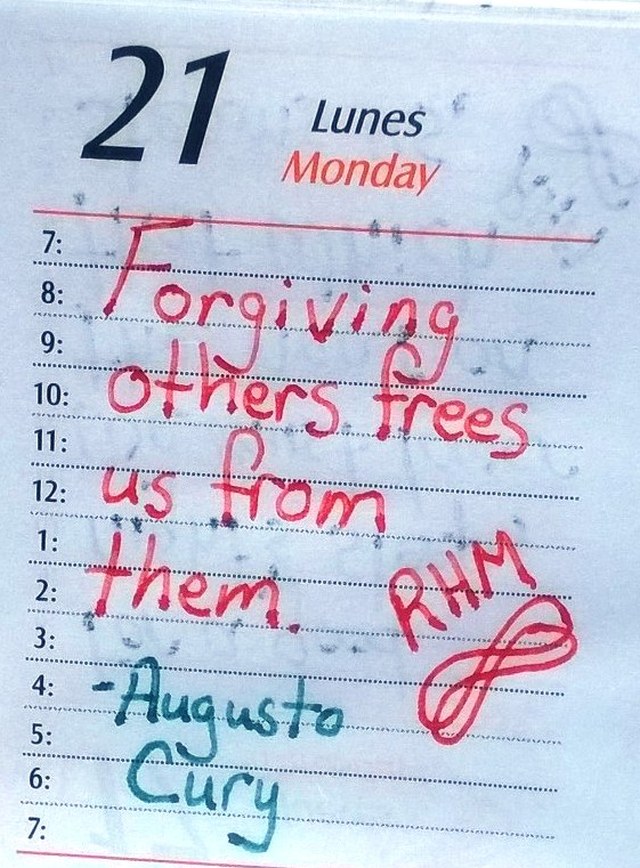 21
Lunes
Monday
7:
Forgiving
8:
9:
others frees
10:
11:
us from
12:
1:
them.
RHM
2:
3:
4:
-Augusto
5:
Cury
6:
7: